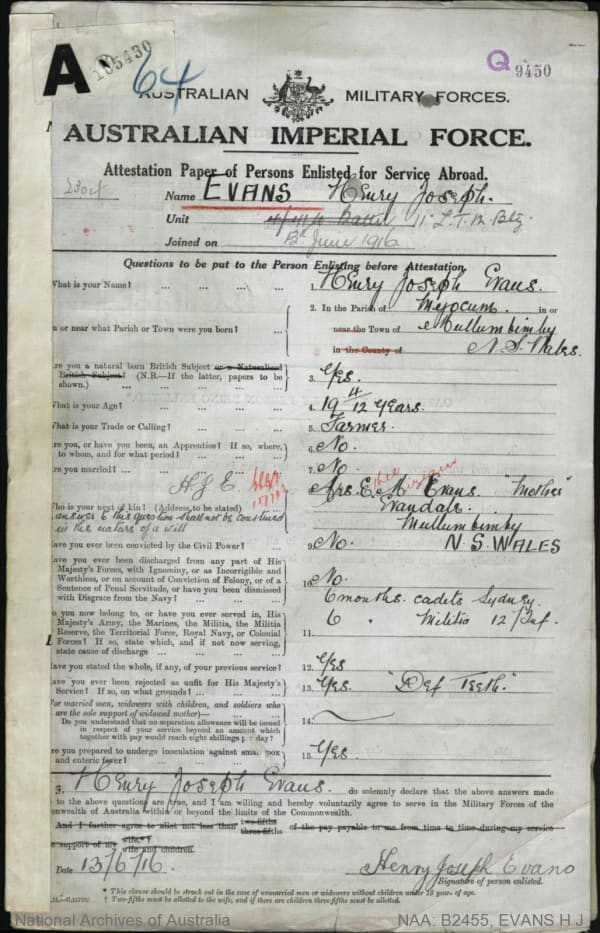 A
105430
64
Q 9450
AUSTRALIAN MILITARY FORCES.
AUSTRALIAN IMPERIAL FORCE.
Attestation Paper of Persons Enlisted for Service Abroad.
Name EVANS Henry Joseph.
Unit 11 L.T.M. Bty.
Joined on June 1916
Questions to be put to the Person Enlisting before Attestation.
What is your Name? ... ... ... ... Henry Joseph Evans.
2. In the Parish of Myocum. in or
n or near what Parish or Town were you born? ... near the Town of Mullumbimby
in the County of N.S. Wales.
re you a natural born British Subject or a Naturalised
British Subject? (N.B.—If the latter, papers to be
shown.) ... ... ... ... 3. Yes.
What is your Age? ... ... ... ... 4. 19 4/12 years.
What is your Trade or Calling? ... ... ... 5. Farmer.
re you, or have you been, an Apprentice? If so, where,
to whom, and for what period? ... ... ... 6. No.
re you married? ... ... ... ... 7. No.
H J E
Mrs. E. M. Evans "Mother"
Who is your next of kin? (Address to be stated)
answer to this question shall not be construed
in the nature of a will
Mullumbimby
ave you ever been convicted by the Civil Power? ... 9. No. N.S. WALES
ave you ever been discharged from any part of His
Majesty's Forces, with Ignominy, or as Incorrigible and
Worthless, or on account of Conviction of Felony, or of a
Sentence of Penal Servitude, or have you been dismissed
with Disgrace from the Navy? ... ... 10. No.
o you now belong to, or have you ever served in, His
Majesty's Army, the Marines, the Militia, the Militia
Reserve, the Territorial Force, Royal Navy, or Colonial
Forces? If so, state which, and if not now serving,
state cause of discharge ... ... ... 11.
6 months. cadets Sydney.
6 " Militia 12/Inf.
ave you stated the whole, if any, of your previous service? 12. Yes
ave you ever been rejected as unfit for His Majesty's
Service? If so, on what grounds? ... ... 13. Yes. "Def Teeth."
For married men, widowers with children, and soldiers who
are the sole support of widowed mother)—
Do you understand that no separation allowance will be issued
in respect of your service beyond an amount which
together with pay would reach eight shillings per day? 14.
re you prepared to undergo inoculation against small pox
and enteric fever? ... ... ... ... 15. Yes.
3. Henry Joseph Evans. do solemnly declare that the above answers made
to the above questions are true, and I am willing and hereby voluntarily agree to serve in the Military Forces of the
nwealth of Australia within or beyond the limits of the Commonwealth.
And I further agree to allot not less than two-fifths three-fifths of the pay payable to me from time to time during my service
e support of my wife.* wife and children.
Date 13/6/16. Henry Joseph Evans
Signature of person enlisted.
* This clause should be struck out in the case of unmarried men or widowers without children under 18 years of age.
† Two-fifths must be allotted to the wife, and if there are children three-fifths must be allotted.
National Archives of Australia NAA: B2455, EVANS H J